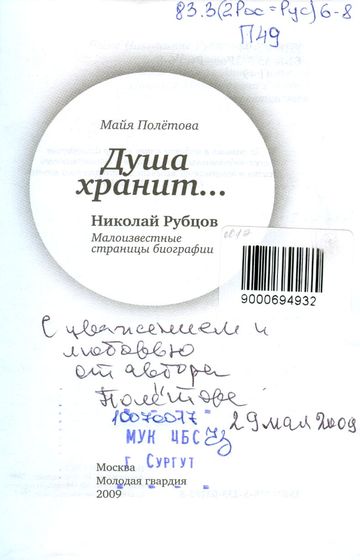 83.3(2Рос=Рус)6-8
П49
Майя Полётова
Душа
хранит...
Николай Рубцов
Малоизвестные
страницы биографии
9000694932
С уважением и
любовью
от автора
29 мая 2009
10070077
МУК ЦБС
г Сургут
Москва
Молодая гвардия
2009